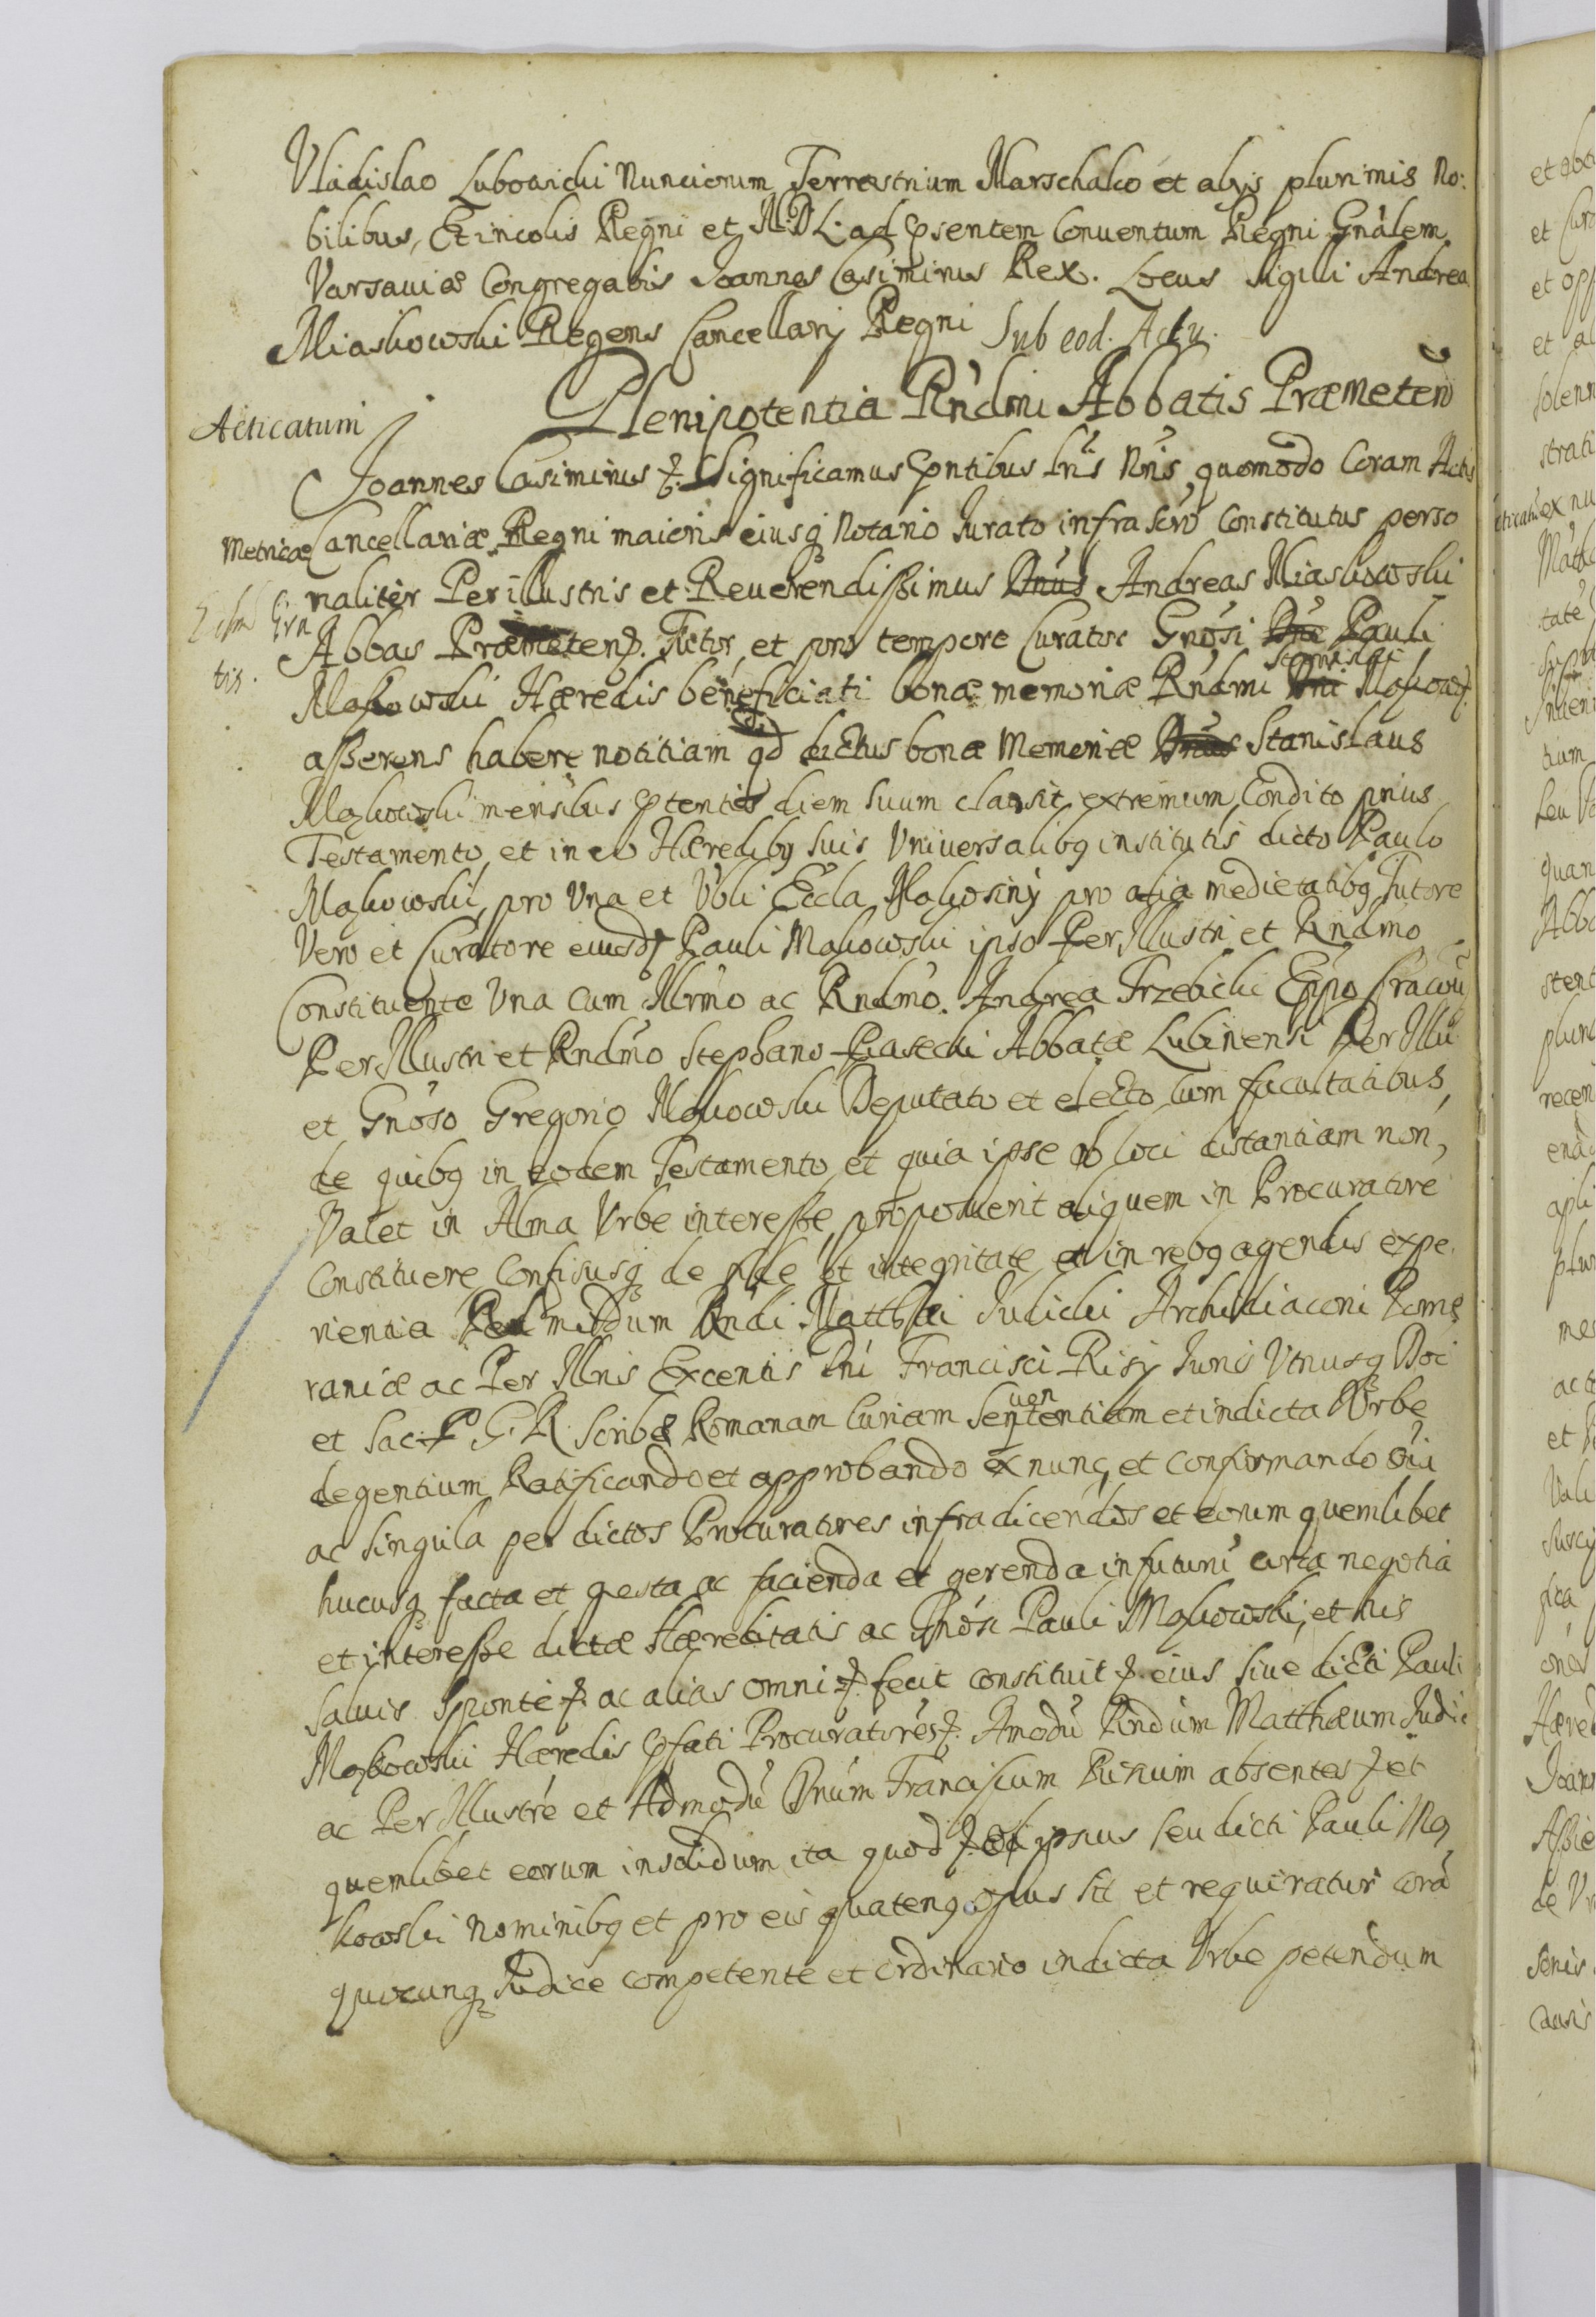 Vladislao Lubowicki Nunciorum Terrestrium Marschalco et alys plurimis No:
bilibus, Et incolis Regni et M.D.L. ad psentem Conventum Regni Gnâlem
Varsaviæ Congregatis Joannes Casimirus Rex. Locus Sigilli Andreas
Miaskowski Regens Cancellariÿ Regni Sub eod. Actu.
Plenipotentia Rndmi Abbatis Præmeteñ
Acticatum
Joannes Casimirus &. Significamus pntibus Lris Nris, quomodo Coram Actis
Metricæ Cancellariæ Regni maioris eiusq Notario Jurato infra scro Constitutus perso
naliter Perillustris et Reverendissimus Dnus Andreas Miaskowski
Grã
Abbas Præmeten&. Tutor, et pro tempore Curator Gnosi Dni Pauli
tis.
Stanislai
Makowski Hæredis beneficiati bonæ memoriæ Rndmi Dni Makow&.
asserens habere notitiam qd dictus bonæ Memoriæ Dnus Stanislaus
Makowski mensibus ptentis diem suum clausit extremum, Condito prius
Testamento, et in eo Hæredibq suis Universalibq institutis dicto Paulo
Makowski, pro Una et Vbli Eccla Makosiny pro alia medietatibq Tutore
Vero et Curatore eiusd& Pauli Makowski ipso Per Illustri et Rndmo
Constituente Una cum Illrmo ac Rndmo. Andrea Trzebicki Eppo Cracou
Per Illustri et Rndmo Stephano Piasecki Abbatæ Lubinensi Per Illu
et Gnoso Gregorio Makowski Deputato et electo cum facultatibus,
de quibq in eodem Testamento, et quia ipse ob loci distantiam non,
Valet in Alma Urbe interesse, proposuerit aliquem in Procuratore
Constituere Confisusq de fide et integritate et in rebq agendis expe
rientia Admodum Rndi Matthæi Judicki Archidiaconi Pome
raniæ ac Per Illris Excentis Dni Francisci Risij Juris Utriusq Doc
et Sac. P. G. R. Scribæ Romanam Curiam Sequentium et in dicta Urbe
degentium Ratificando et approbando ex nunc, et confirmando oia
ac singula per dictos Procuratores infradicendos et eorum quemlibet
hucusq facta et gesta ac facienda et gerenda in futurũ circa negotia
et interesse dictæ Hæreditatis ac Gnosi Pauli Makowski, et his
salvis sponte &. ac alias omni &. fecit constituit &. eius sive dicti Pauli
Makowski Hæredis pfati Procuratores&. Amodũ Rndum Matthæum Judic
ac Per Illustré et Admodũ Dnum Franciscum Risium absentes & et
quemlibet eorum insolidum ita quod & ad ipsius seu dicti Pauli Ma
kowski Nominibq et pro eis quatenq opus sit et requiratur corã
quocunq Judice competente et ordinario in dicta Urbe petendum